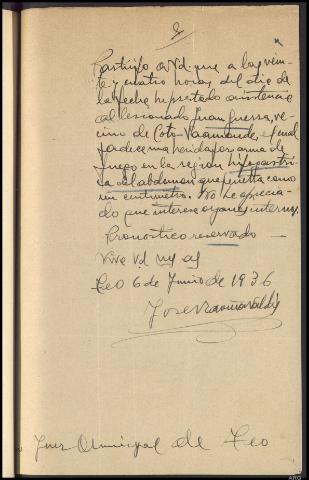 Participo a Vd. que a las vein-
te y cuatro horas del dia de
la fecha he prestado asistencia
al lesionado Juan Guerra, ve-
cino de Coto-Vaamonde, el cual
padece una herida por arma de
fuego en la región hipogastri-
ca del abdomen que
un centimetro. No he aprecia-
do que interese organos internos.
Pronostico reservado
Viva Vd. m. a.
Teo 6 de Junio de 1936
Jose
Juez Municipal de Teo